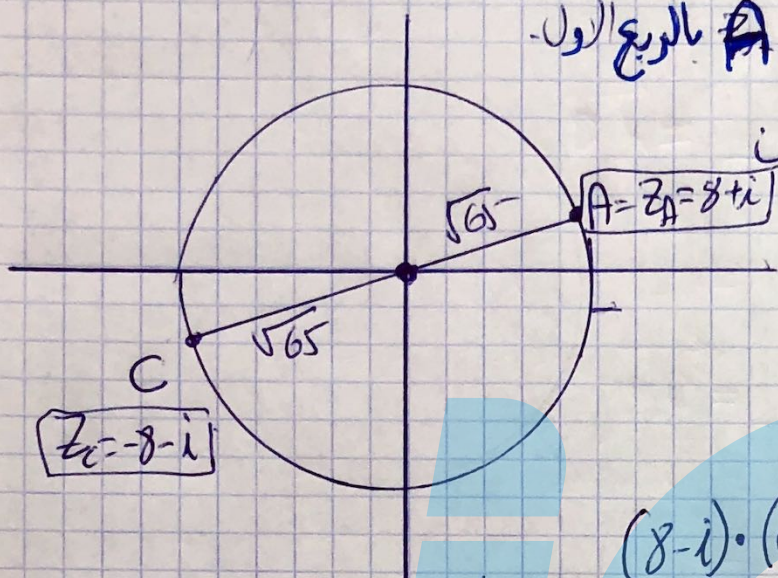 A بالربع الاول.
A = Z_A = 8+i
√65
√65
C
Z_C = -8-i
(8-i)·(